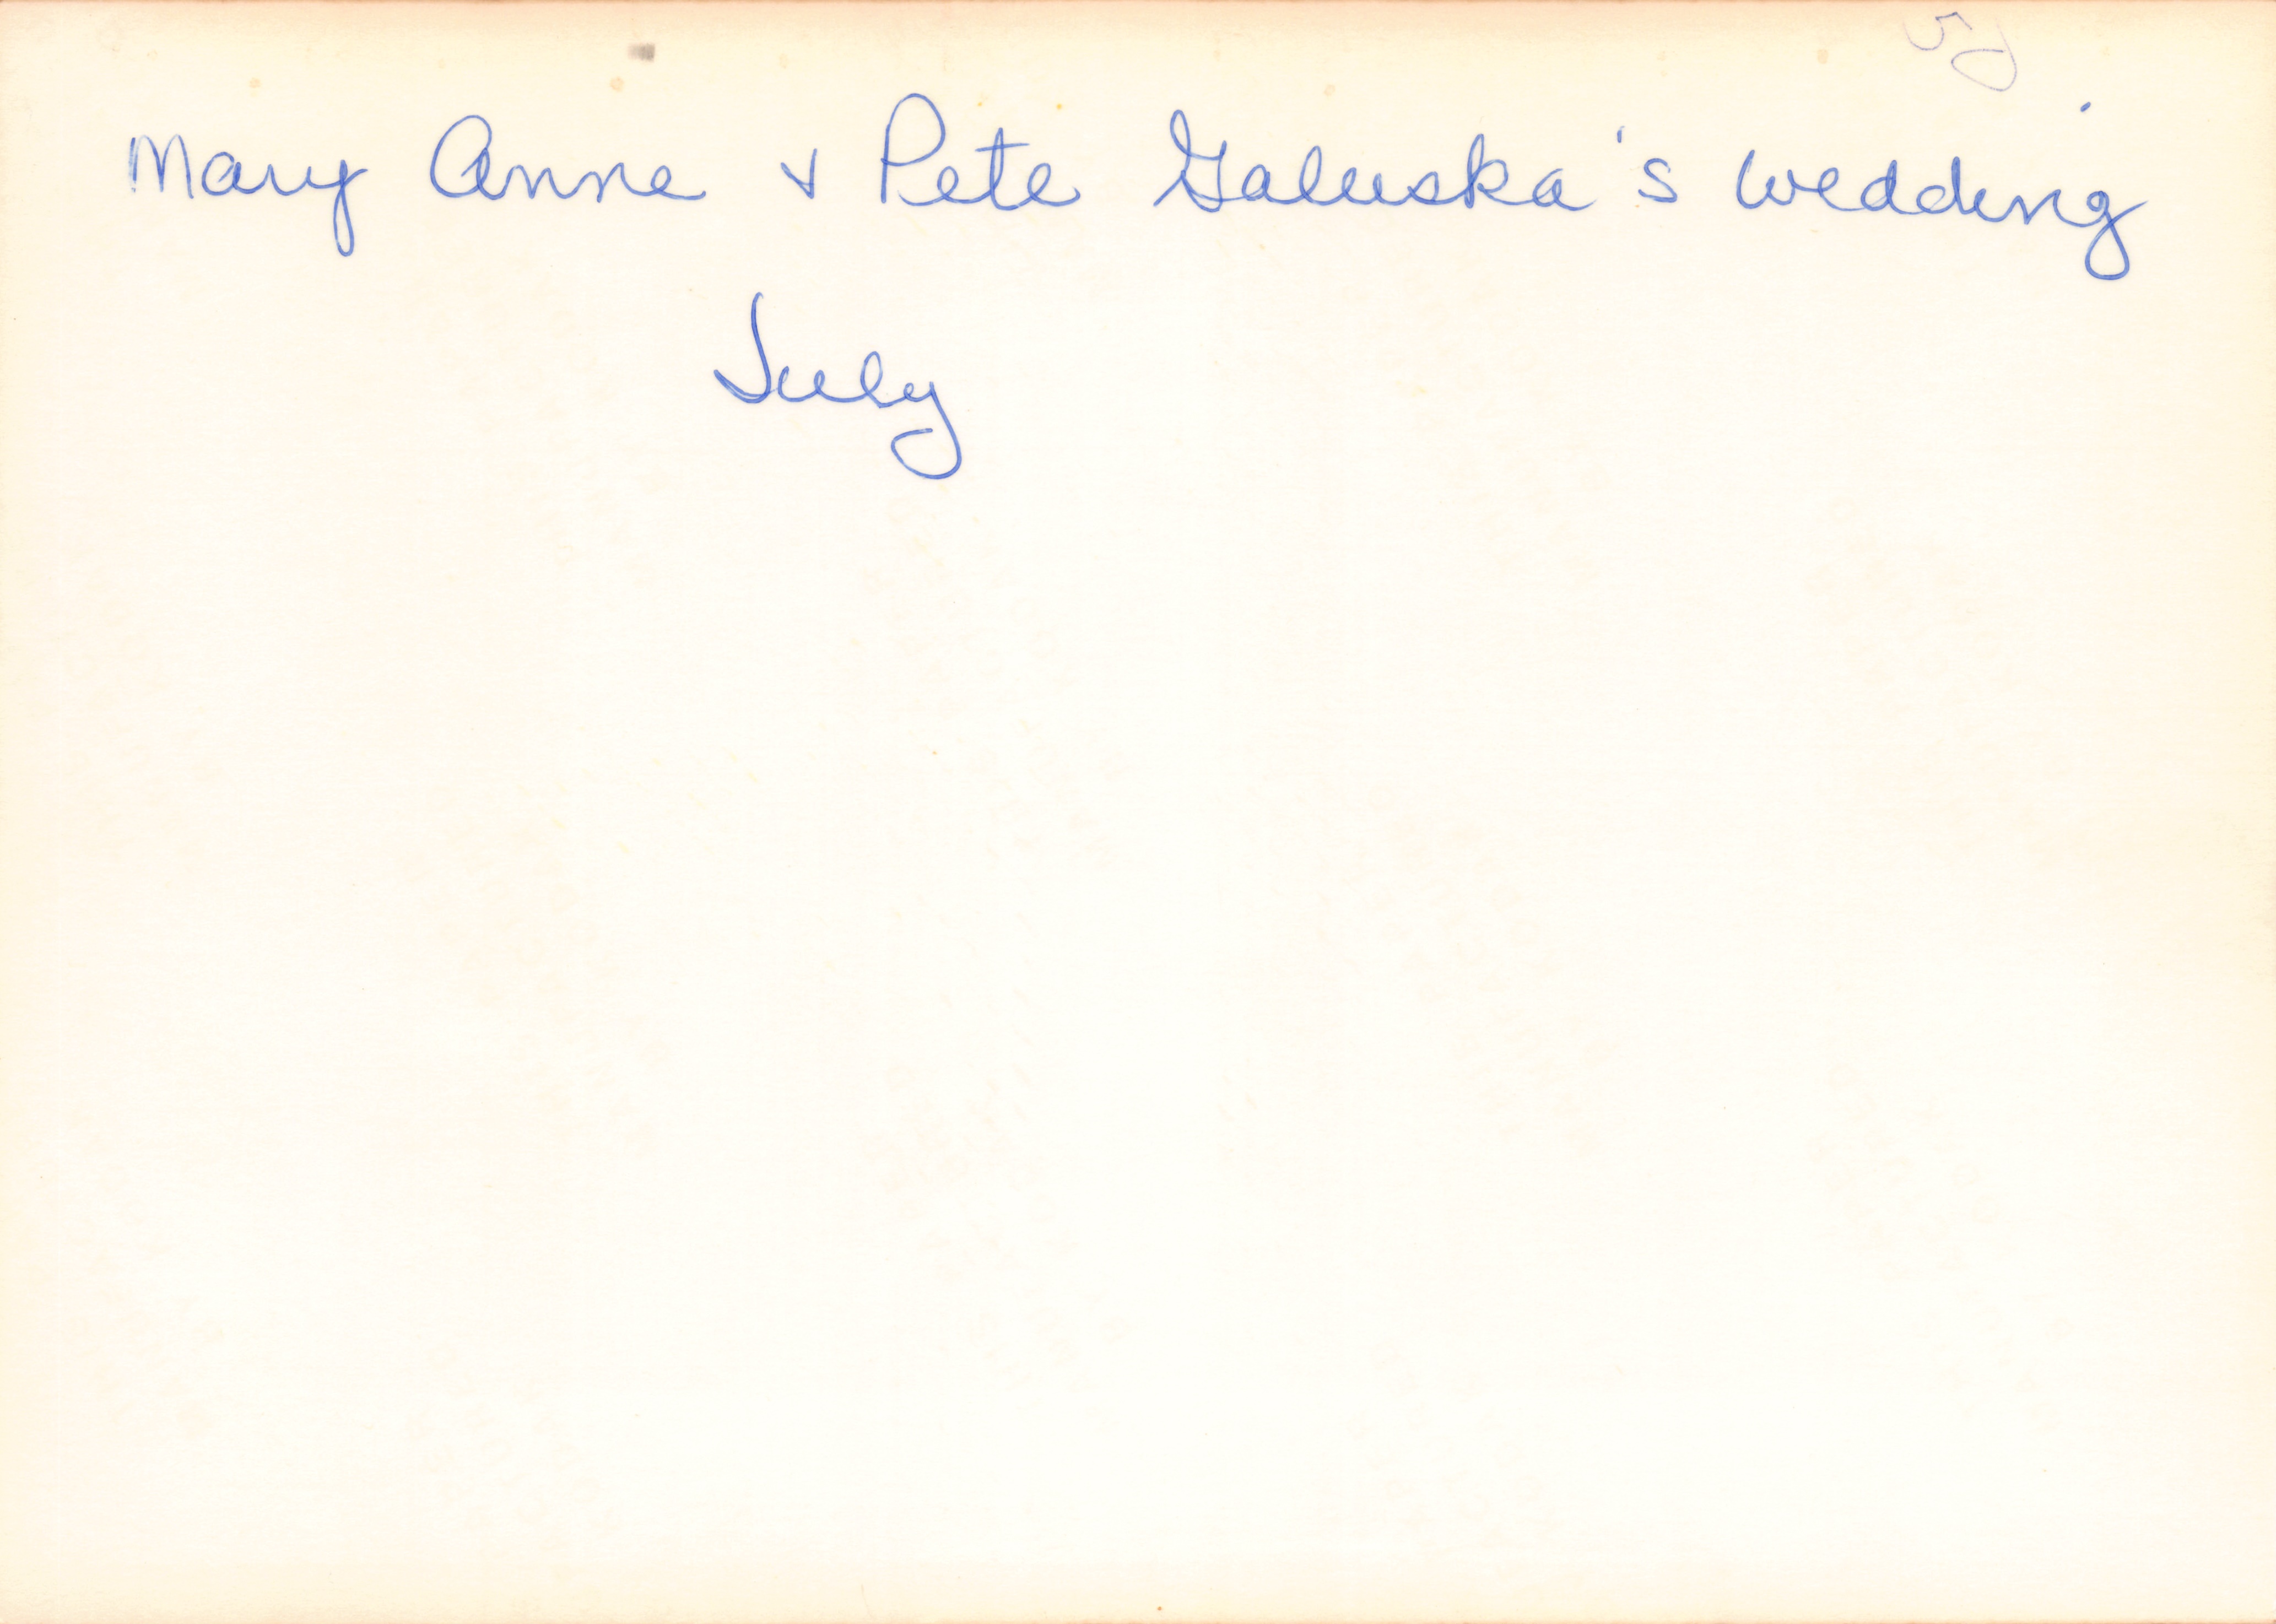 Mary Anne & Pete Galuska's Wedding
July